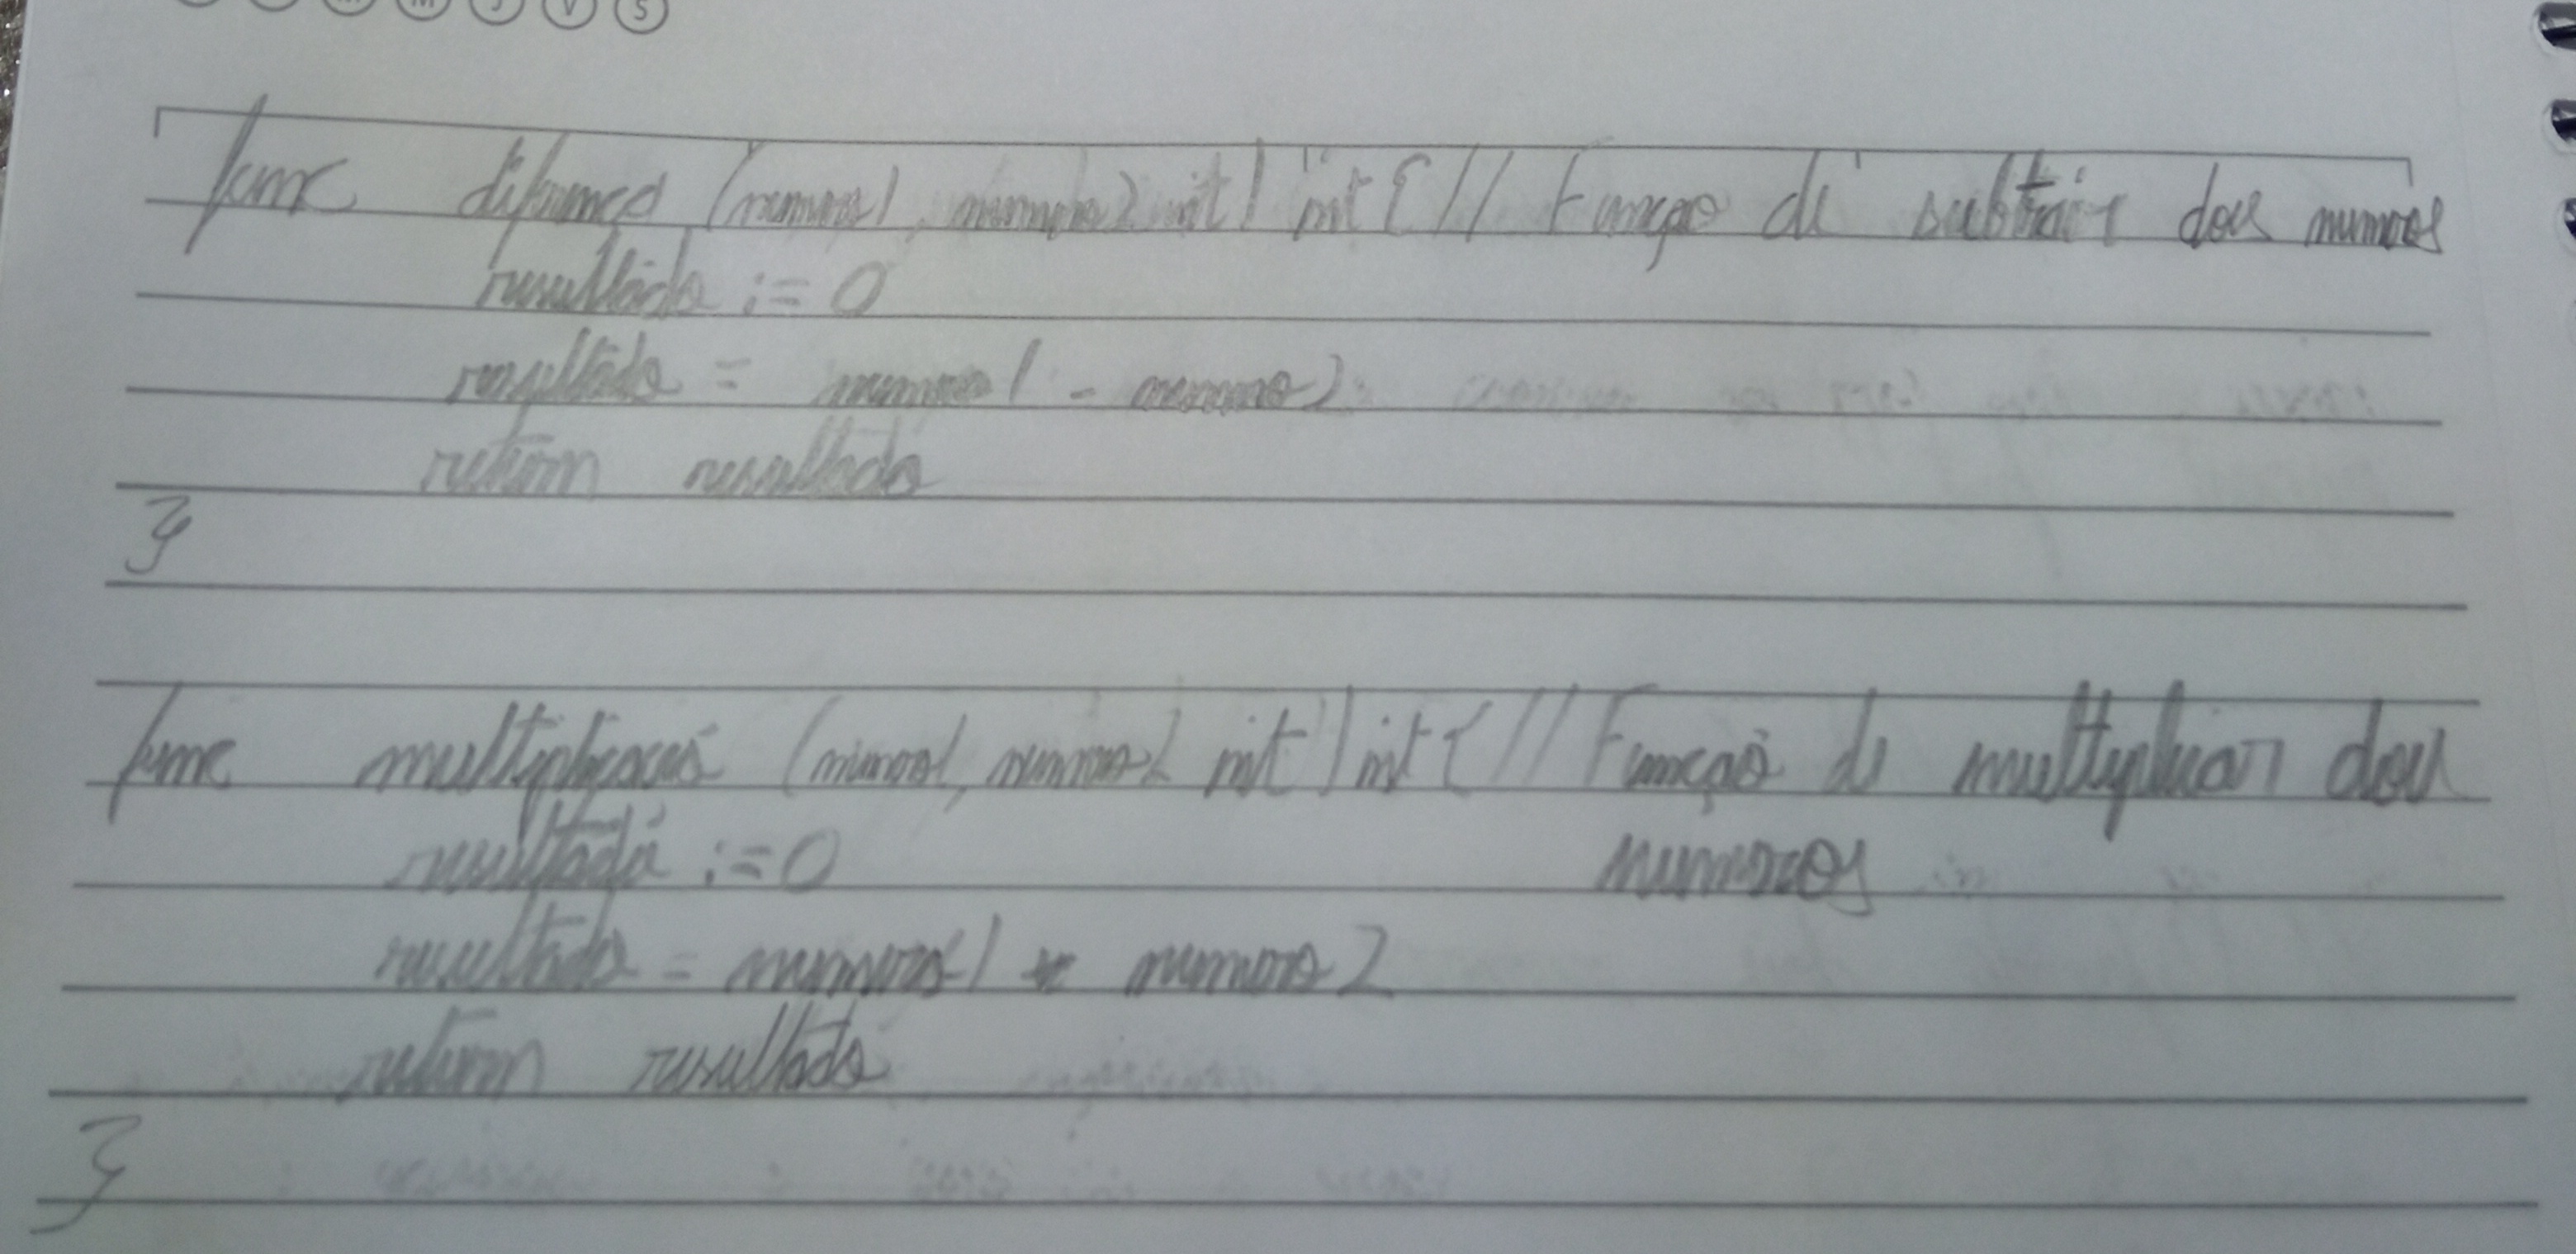 func diferença (numero1, numero2 int) int { // Função de subtrair dois numeros
resultado := 0
resultado = numero1 - numero2
return resultado
}
func multiplicacao (numero1, numero2 int) int { // Função de multiplicar dois
numeros
resultado := 0
resultado = numero1 * numero2
return resultado
}